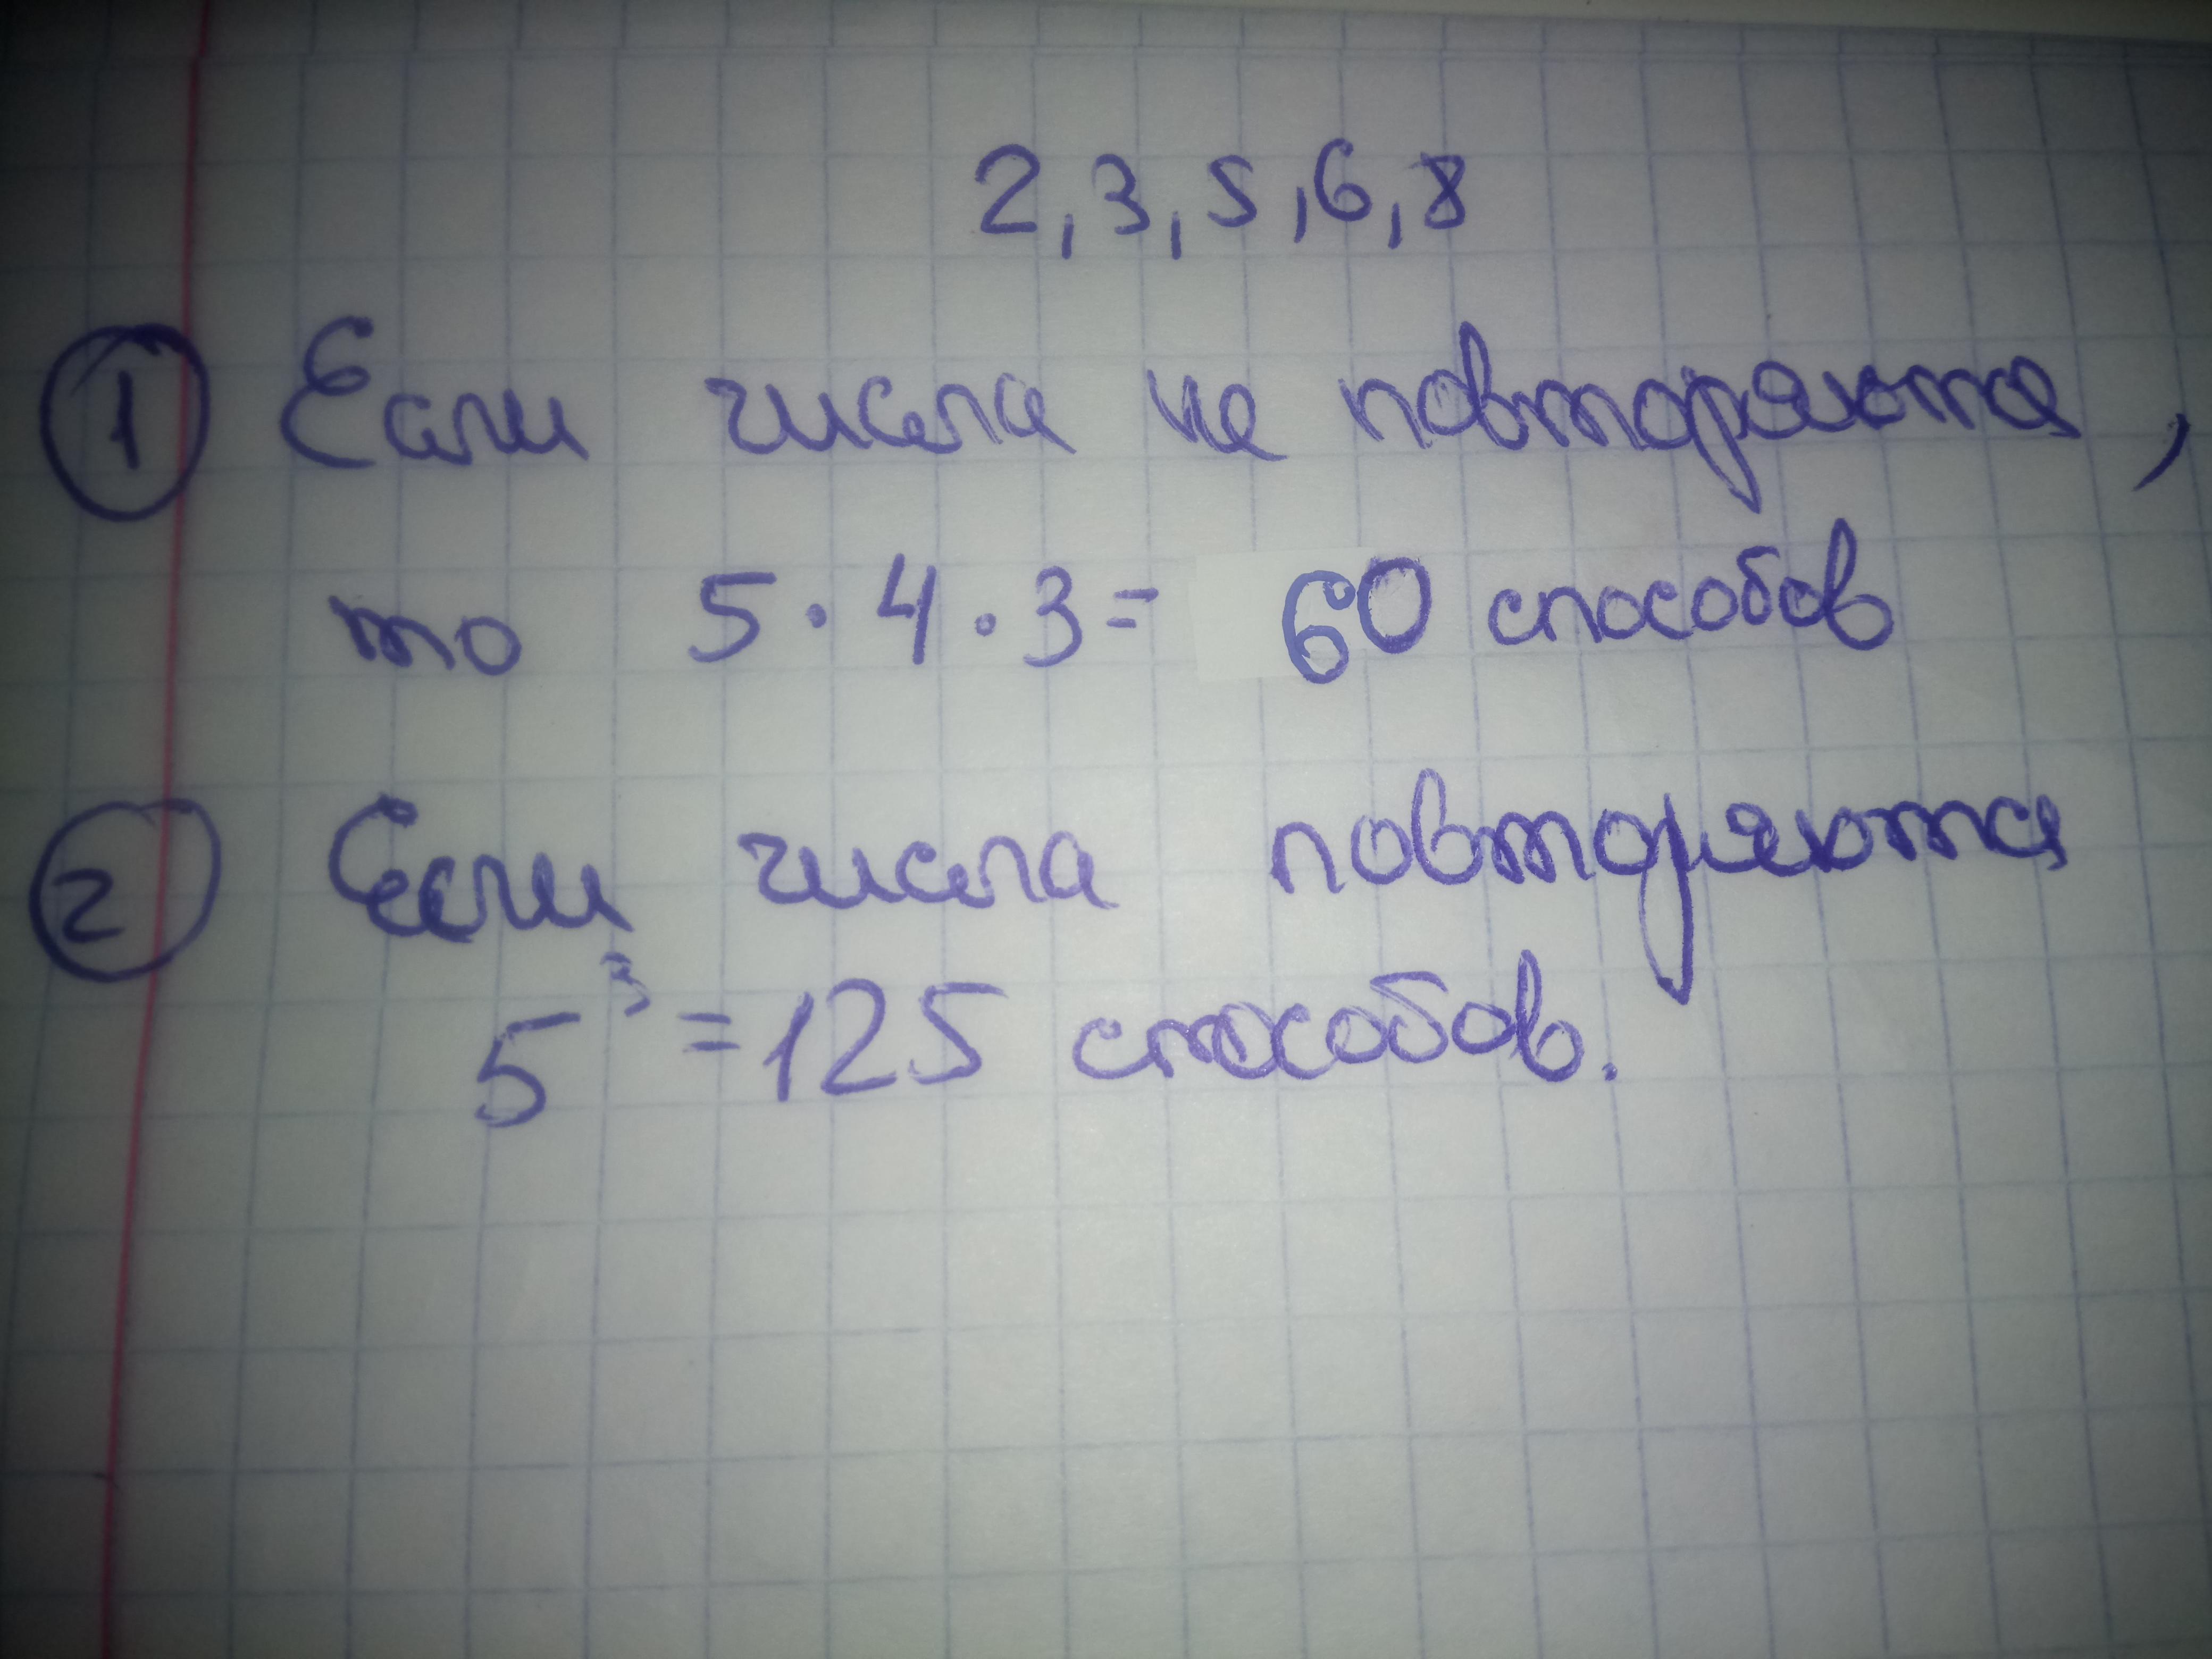 2, 3, 5, 6, 8
① Если числа не повторяются,
то 5 · 4 · 3 = 60 способов
② Если числа повторяются
5³ = 125 способов.